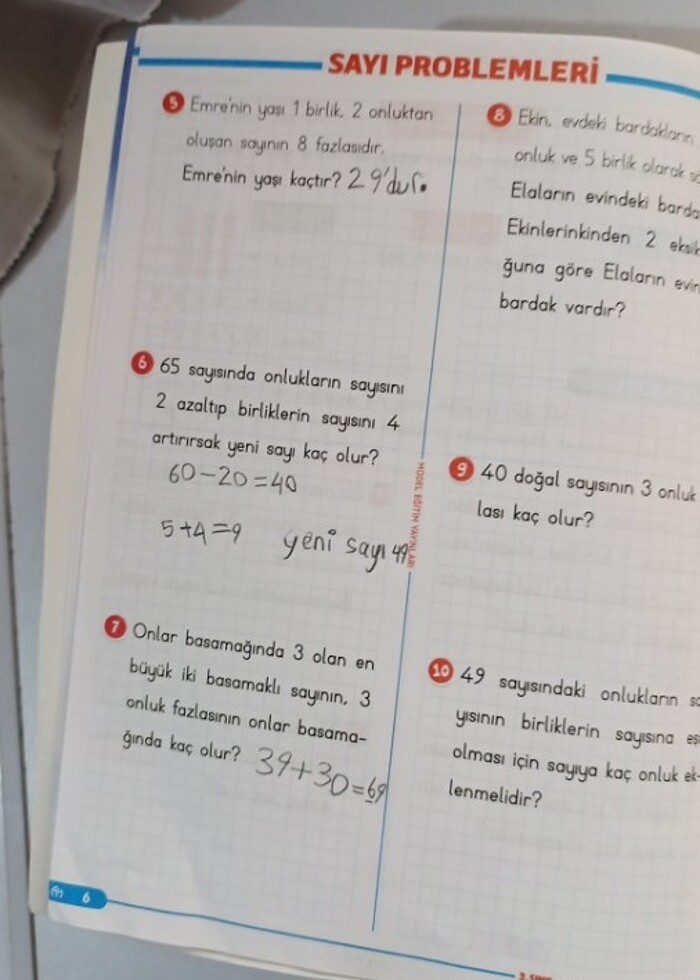 SAYI PROBLEMLERİ
5 Emre'nin yaşı 1 birlik, 2 onluktan
oluşan sayının 8 fazlasıdır.
Emre'nin yaşı kaçtır? 29'dur.
6 65 sayısında onlukların sayısını
2 azaltıp birliklerin sayısını 4
artırırsak yeni sayı kaç olur?
60-20=40
5+4=9 yeni sayı 49
7 Onlar basamağında 3 olan en
büyük iki basamaklı sayının, 3
onluk fazlasının onlar basama-
ğında kaç olur? 39+30=69
6
MODEL EĞİTİM YAYINLARI
8 Ekin, evdeki bardakların
onluk ve 5 birlik olarak
Elaların evindeki barda
Ekinlerinkinden 2 eksik
ğuna göre Elaların evin
bardak vardır?
9 40 doğal sayısının 3 onluk
lası kaç olur?
10 49 sayısındaki onlukların sa
yısının birliklerin sayısına eşi
olması için sayıya kaç onluk ek-
lenmelidir?
2. SINIF